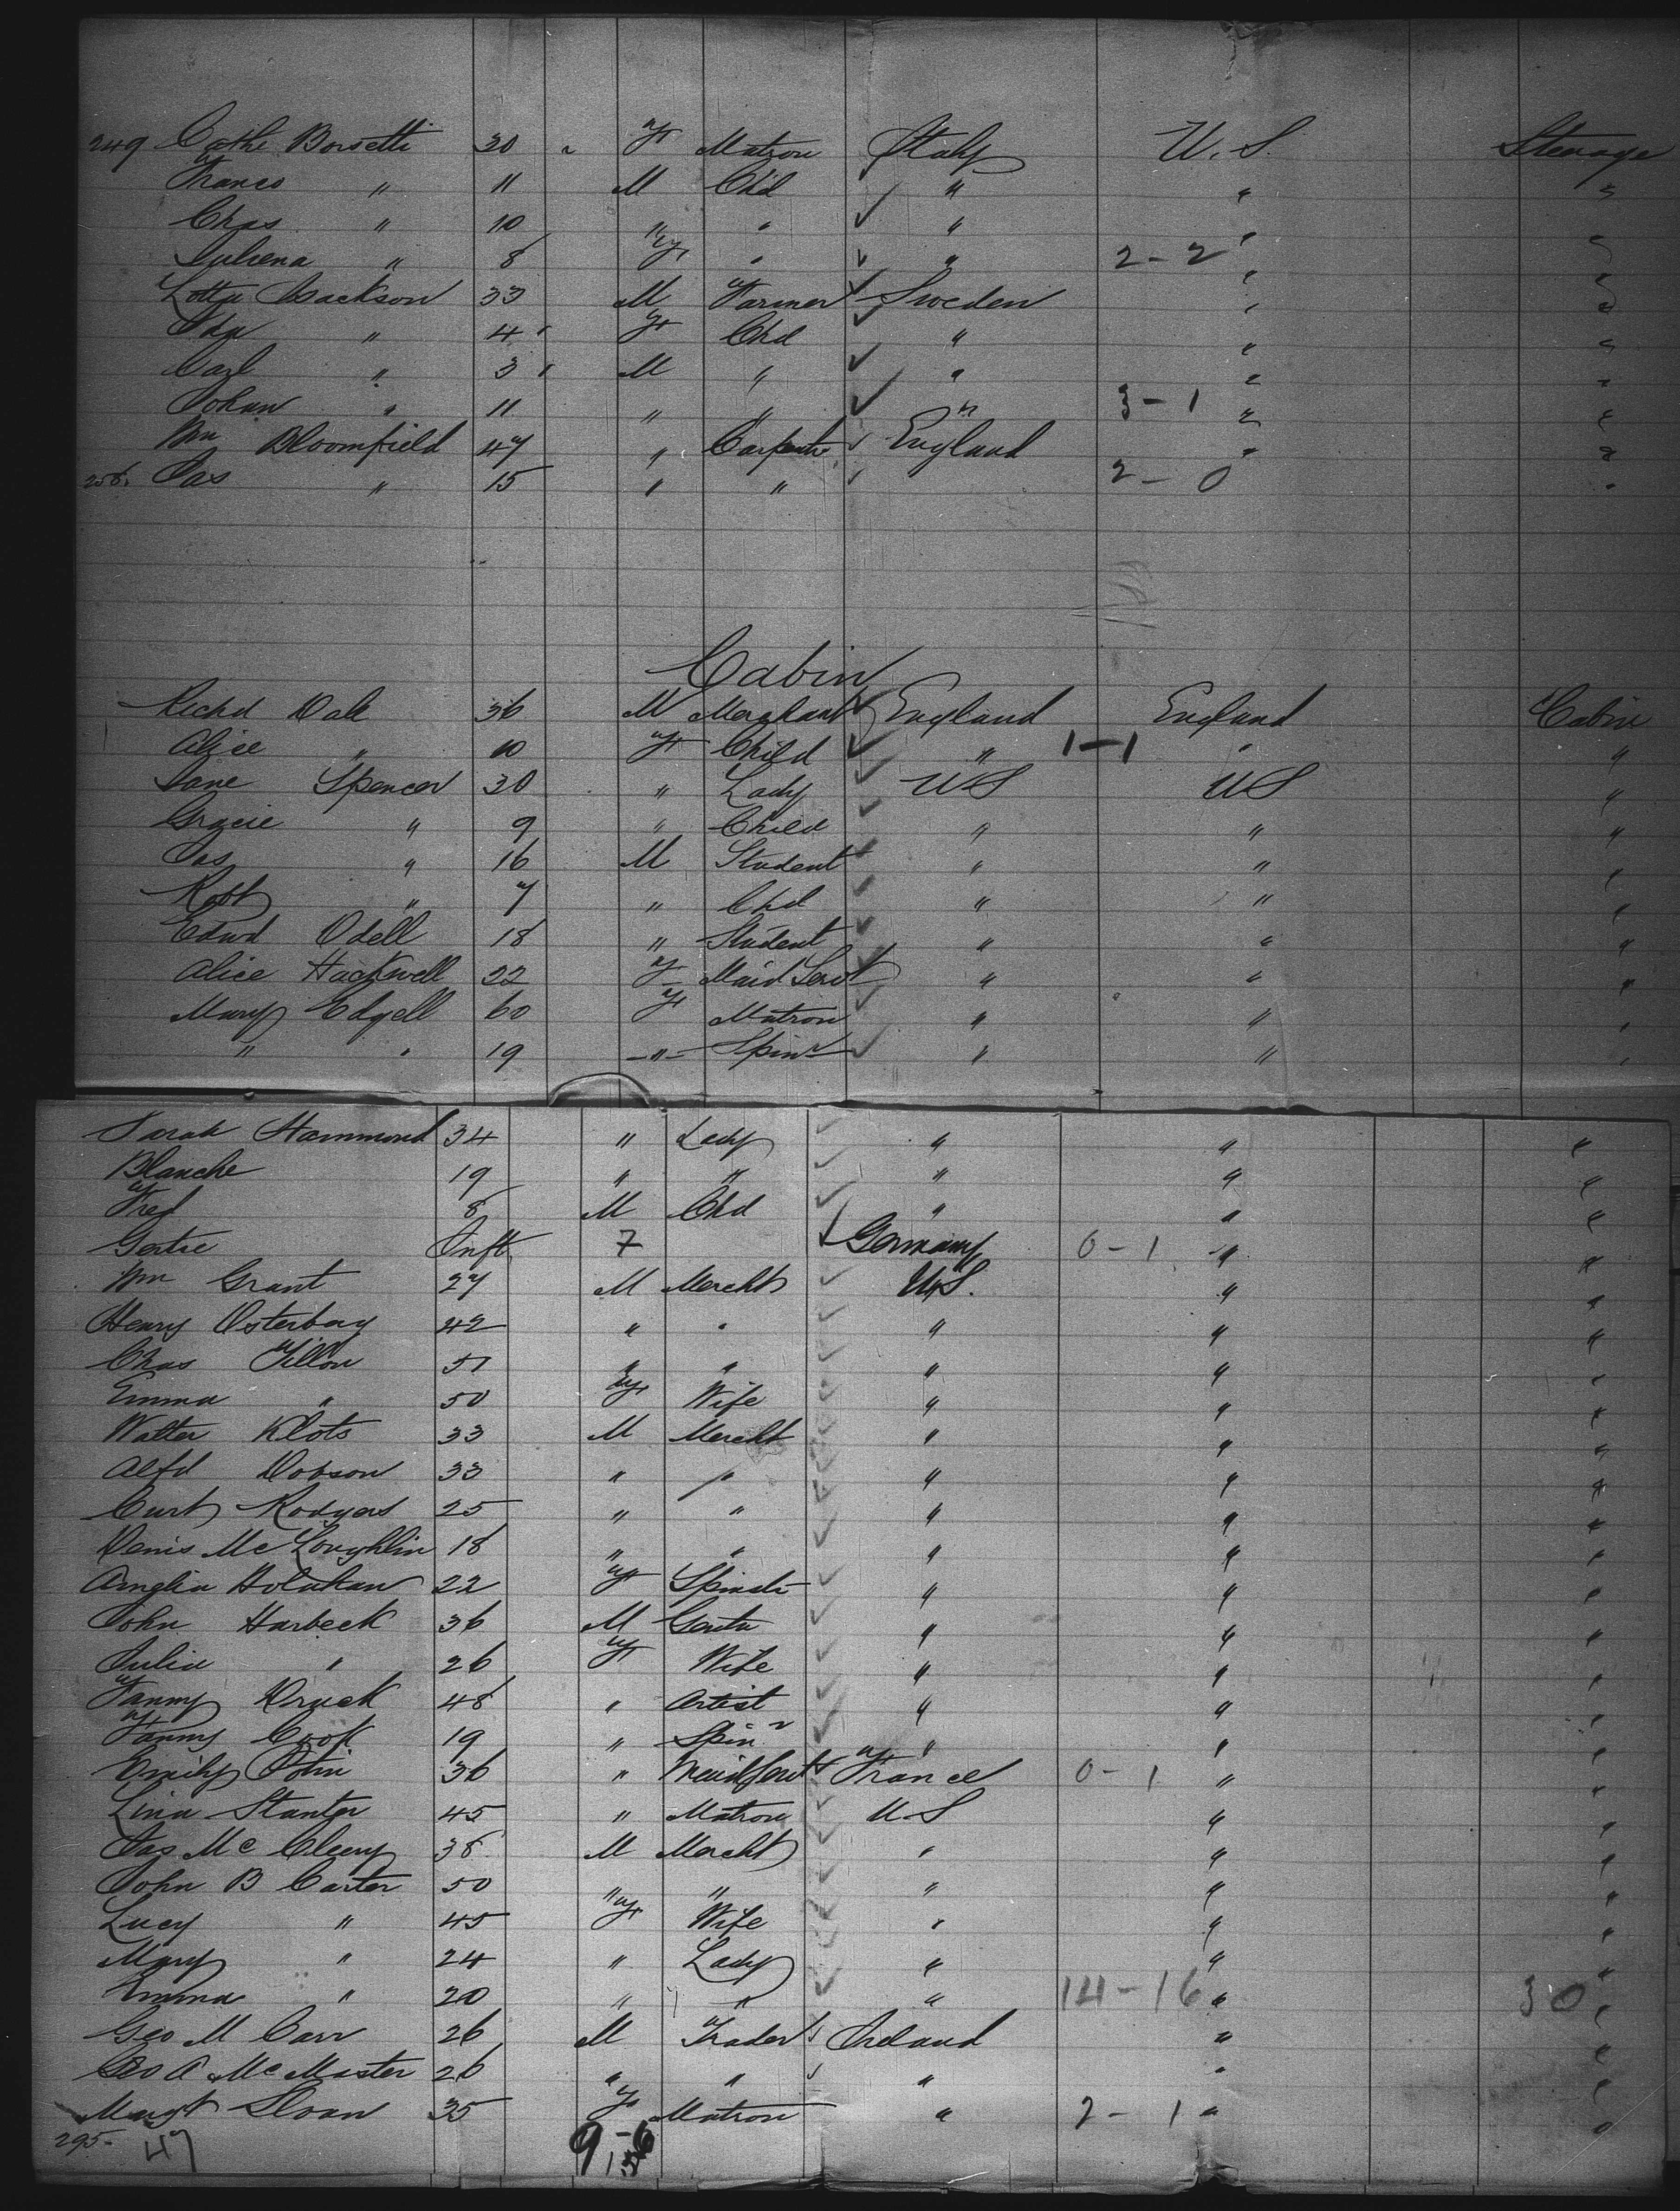 249 Cathe Borsetti 30 " F Matron Italy U.S. Steerage
Franco " 11 M Chd " " "
Chas " 10 " " " " "
Juliena " 8 F " " 2-2 " "
Lotta Isackson 33 M Farmer Sweden " "
Ida " 4 F Chd " " "
Carl " 3 M " " " "
Johan " 11 " " " 3-1 " "
Wm Bloomfield 47 " Carpenter England " "
258. Jas " 15 " " 2-0 "
Cabin
Richd Dale 36 M Merchant England England Cabin
Alice " 10 F Child " 1-1 " "
Jane Spencer 30 " Lady US US "
Gracie " 9 " Child " " "
Jas " 16 M Student " " "
Robt " 7 " Chd " " "
Edwd Odell 18 " Student " " "
Alice Hackwell 22 F Maid Servt " " "
Mary Edgell 60 F Matron " " "
" " 19 " Spinr " " "
Sarah Hammond 34 " Lady " " "
Blanche 19 " " " " "
Fred 8 M Chd " " "
Gertie Inft 7 Germany 0-1 " "
Wm Grant 27 M Mercht U.S. " "
Henry Osterberg 42 " " " " "
Chas Tillon 51 " " " " "
Emma " 50 F Wife " " "
Walter Klots 33 M Mercht " " "
Alfd Dobson 33 " " " " "
Curt Rodgers 25 " " " " "
Denis McLoughlin 18 " " " " "
Amglia Holahan 22 F Spinstr " " "
John Harbeck 36 M Gentn " " "
Julia " 26 F Wife " " "
Fanny Druck 48 " Artist " " "
Fanny Cook 19 " Spinr " " "
Emily John 36 " Maid Servt France 0-1 " "
Lina Stantyr 45 " Matron U.S " "
Jas McCleery 38 M Mercht " " "
John B Carter 50 " " " " "
Lucy " 45 F Wife " " "
Mary " 24 " Lady " " "
Emma " 20 " " " 14-16 " 30 "
Geo M Carr 26 M Trader Ireland " "
Geo A McMaster 26 " " " " "
Margt Sloan 35 F Matron " 2-1 " "
295- 47